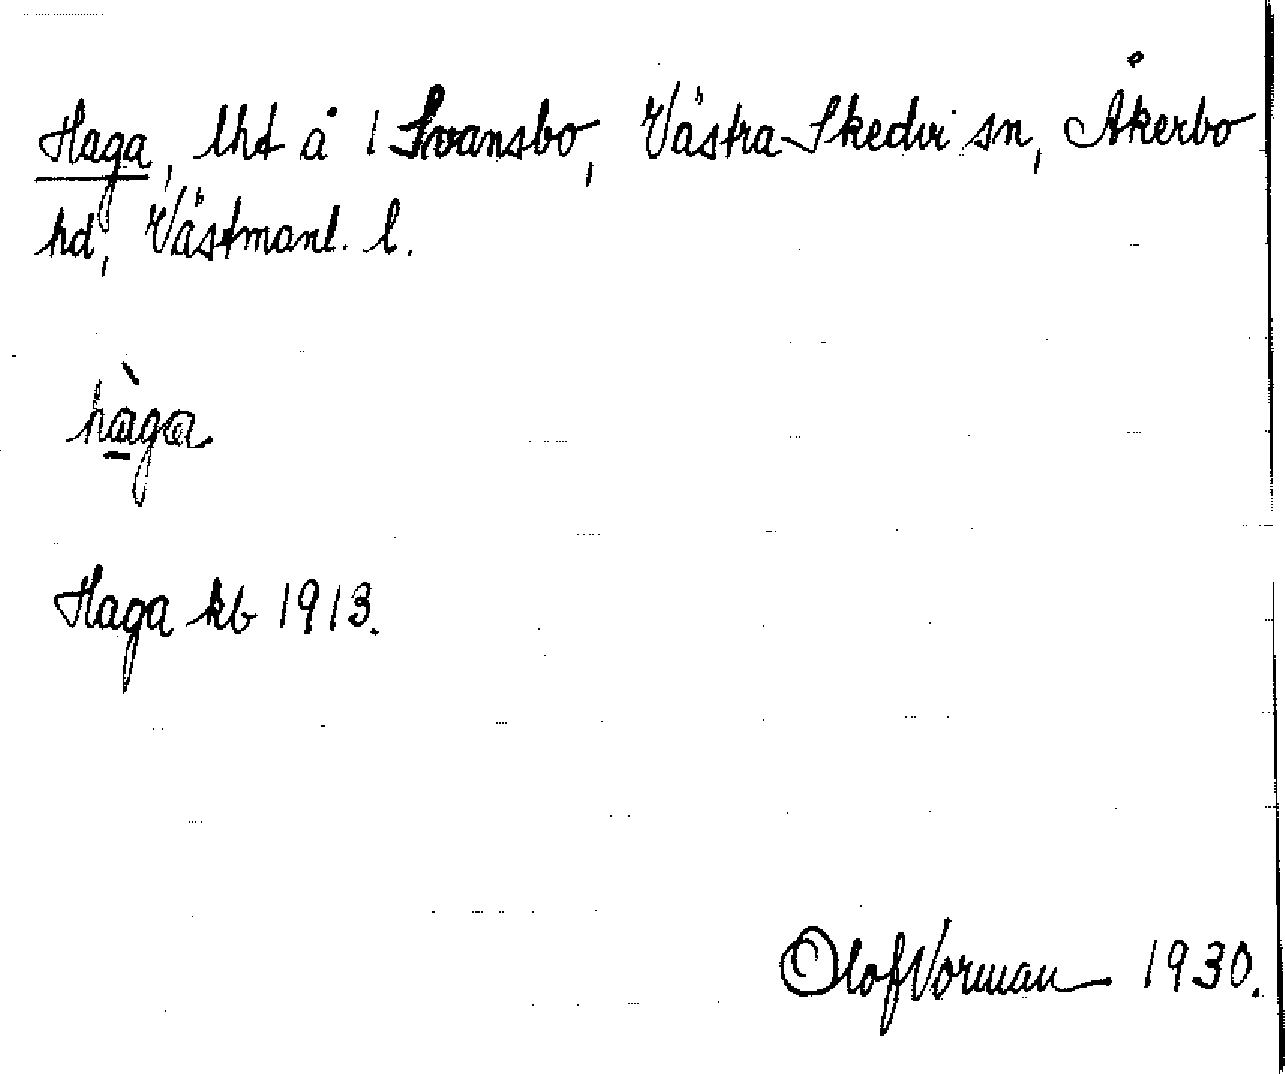 Haga, lht å 1 Svansbo, Västra Skedvi sn, Åkerbo
hd, Västmanl. l.
hàga
Haga kb 1913.
Olof Vorman 1930.